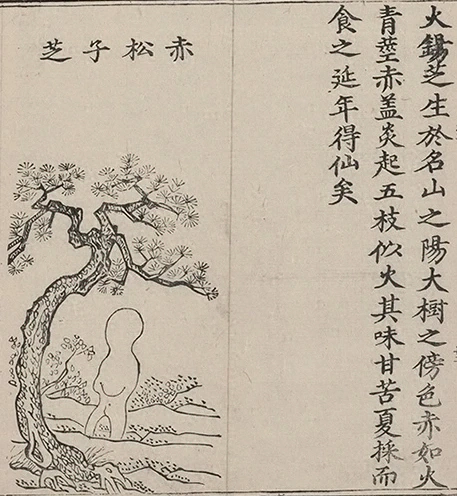 火錫芝生於名山之陽大樹之傍色赤如火
青莖赤盖炎起五枝似火其味甘苦夏採而
食之延年得仙矣
赤松子芝